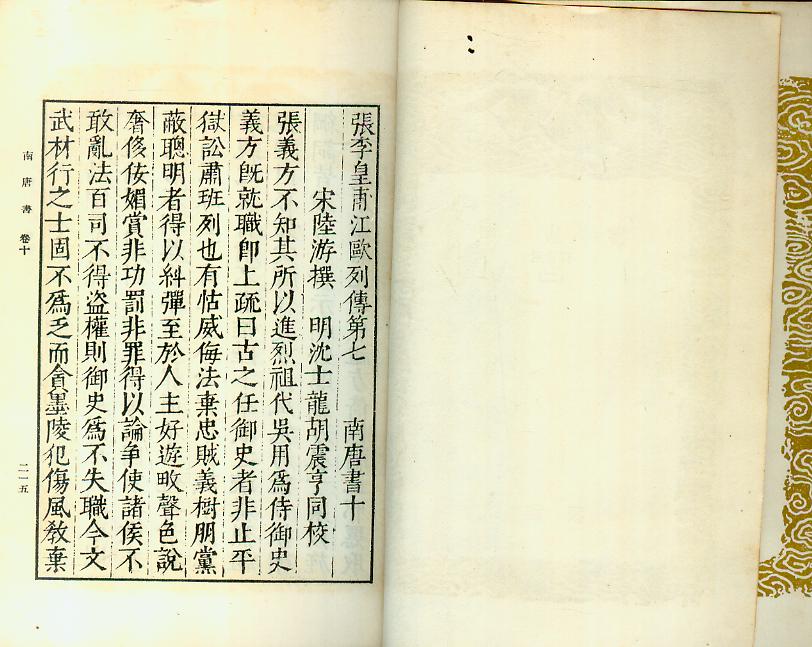 張李皇甫江歐列傳第七 南唐書十
宋陸游撰 明沈士龍胡震亨同校
張義方不知其所以進烈祖代吳用爲侍御史
義方旣就職卽上疏曰古之任御史者非止平
獄訟肅班列也有怙威侮法棄忠賊義樹朋黨
蔽聰明者得以糾彈至於人主好遊畋聲色說
奢侈佞媚賞非功罰非罪得以論争使諸侯不
敢亂法百司不得盗權則御史爲不失職今文
武材行之士固不爲乏而貪墨陵犯傷風敎棄
南唐書 卷十
二一五